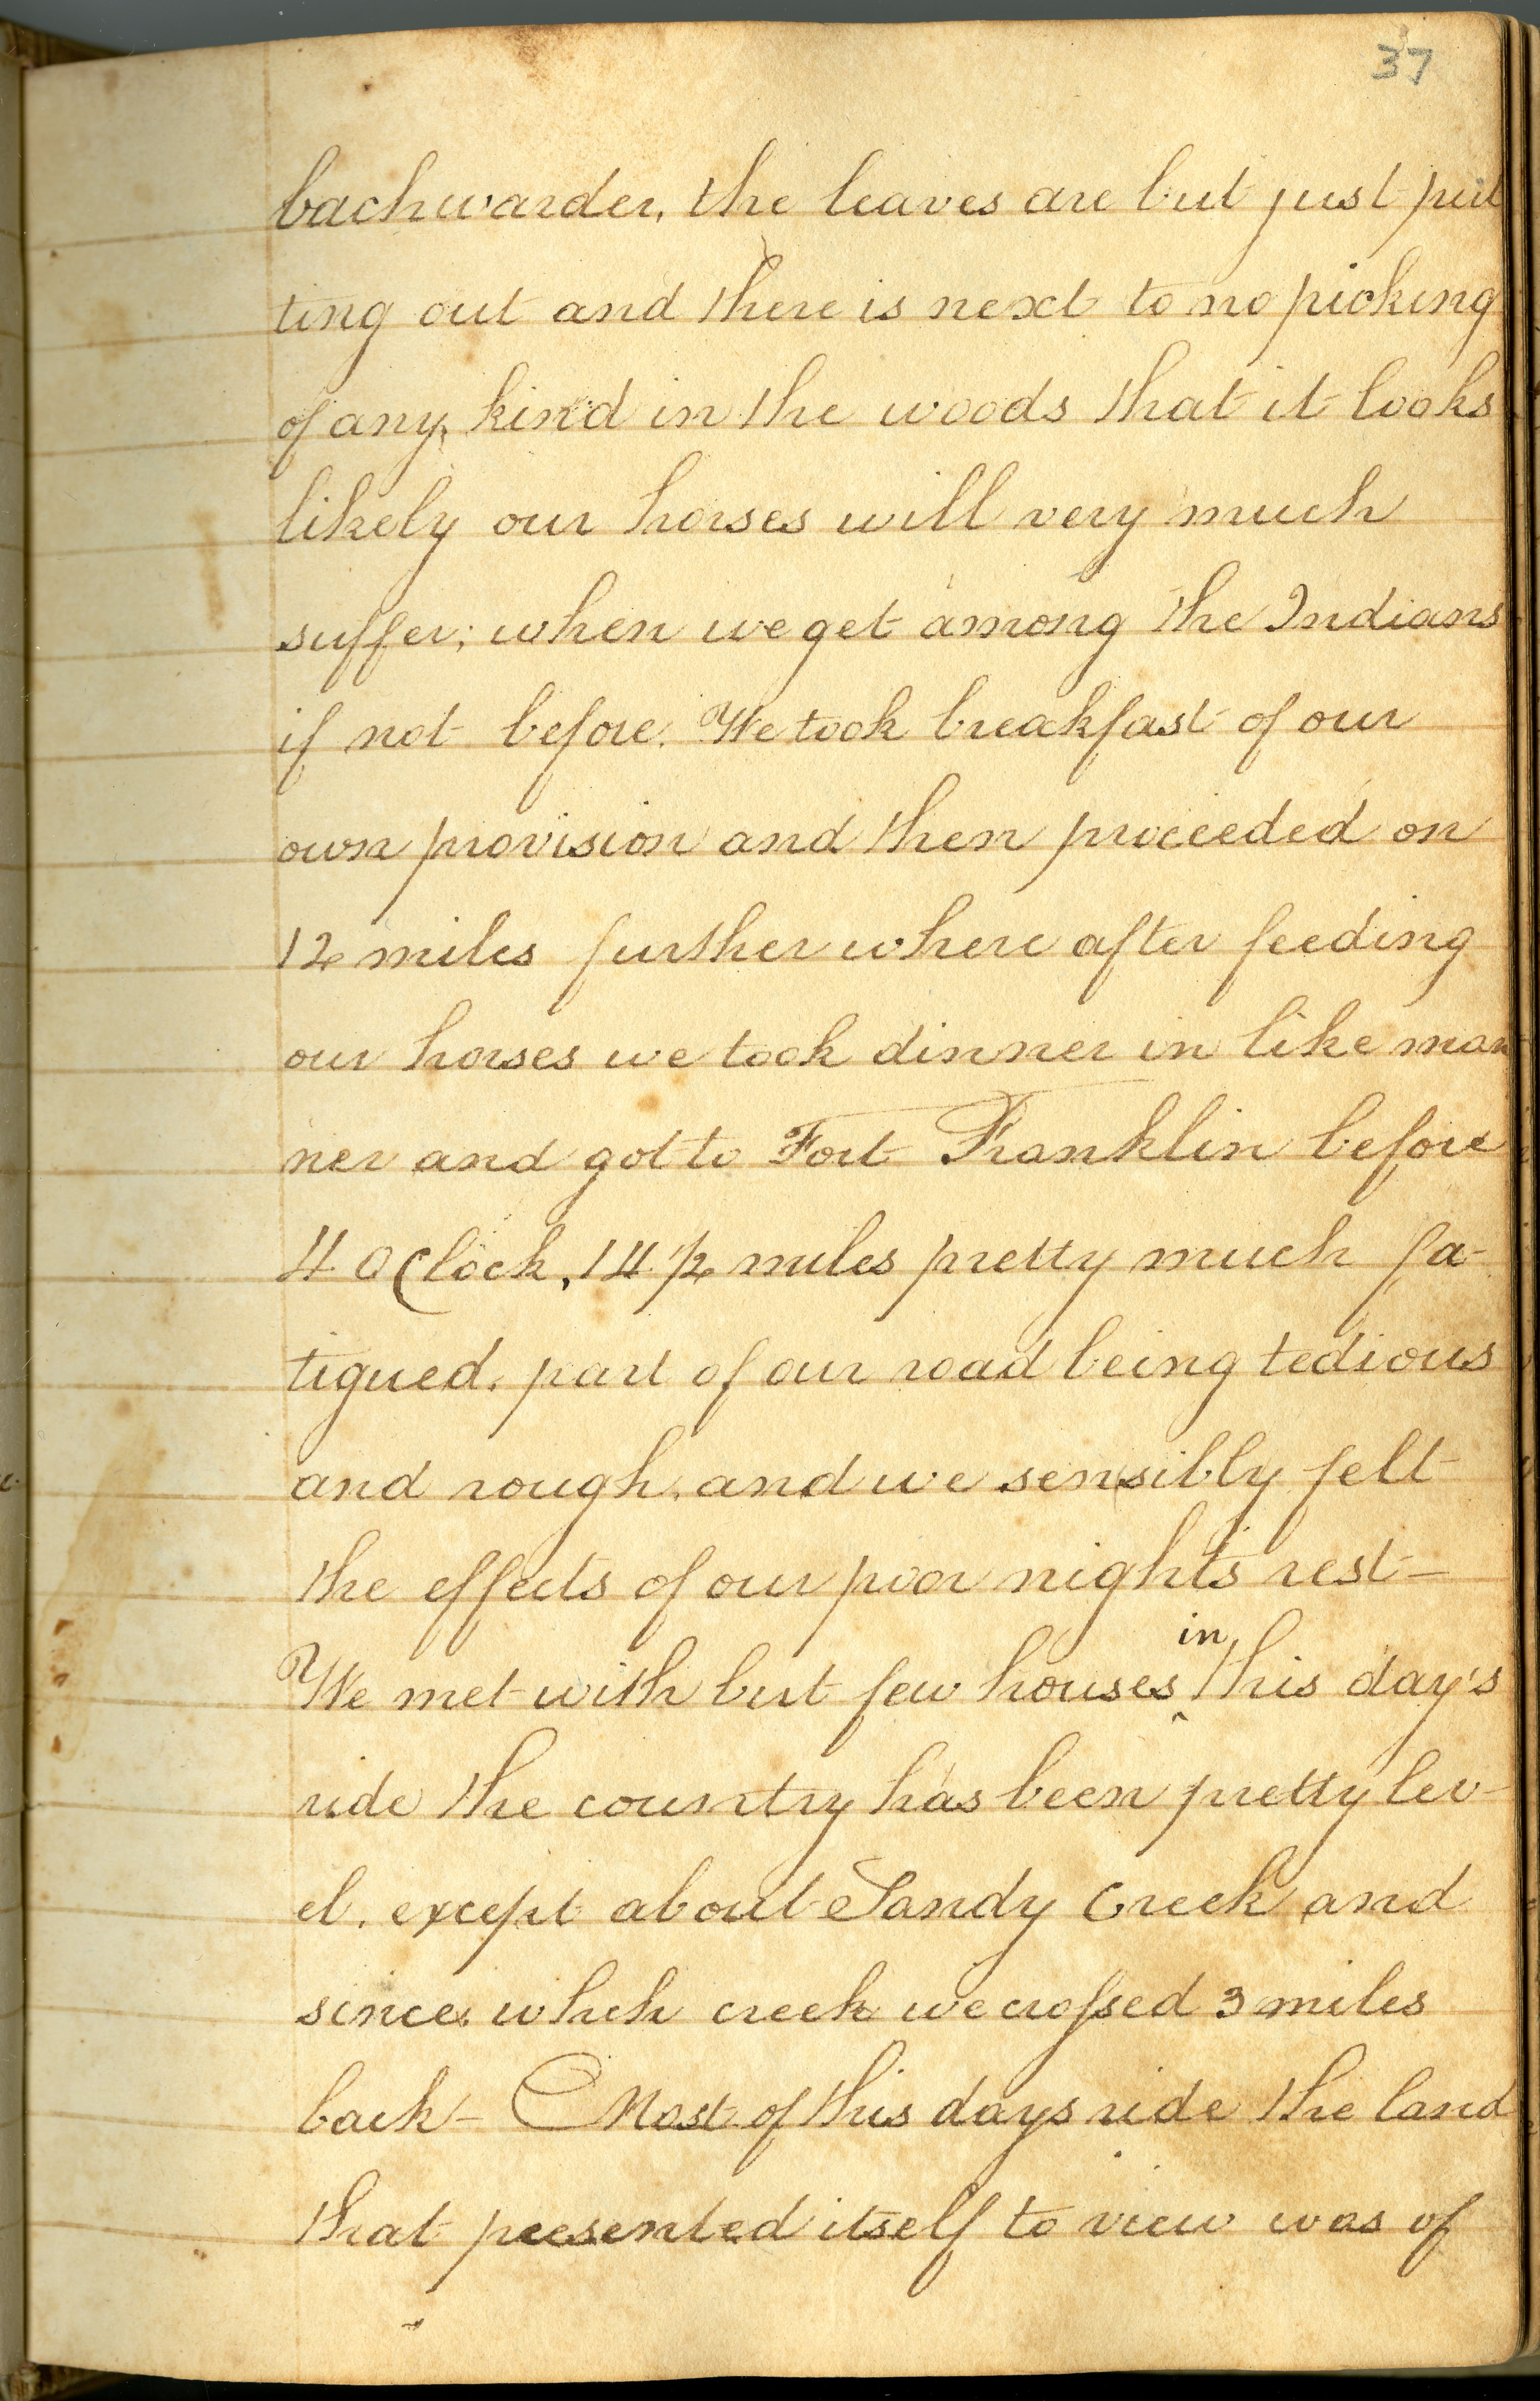 37
backwarder, the leaves are but just put
ting out and there is next to no picking
of any, kind in the woods that it looks
likely our horses will very much
suffer; when we get among the Indians
if not before. We took breakfast of our
own provision and then proceeded on
12 miles further where after feeding
our horses we took dinner in like man
ner and got to Fort Franklin before
4 OClock, 14 1/2 miles pretty much fa-
tigued, part of our road being tedious
and rough, and we sensibly felt
the effects of our poor nights rest-
We met with but few houses ^in this day's
ride the country has been pretty lev-
el, except about Sandy Creek and
since, which creek we crossed 3 miles
back- Most of this days ride the land
that presented itself to view was of